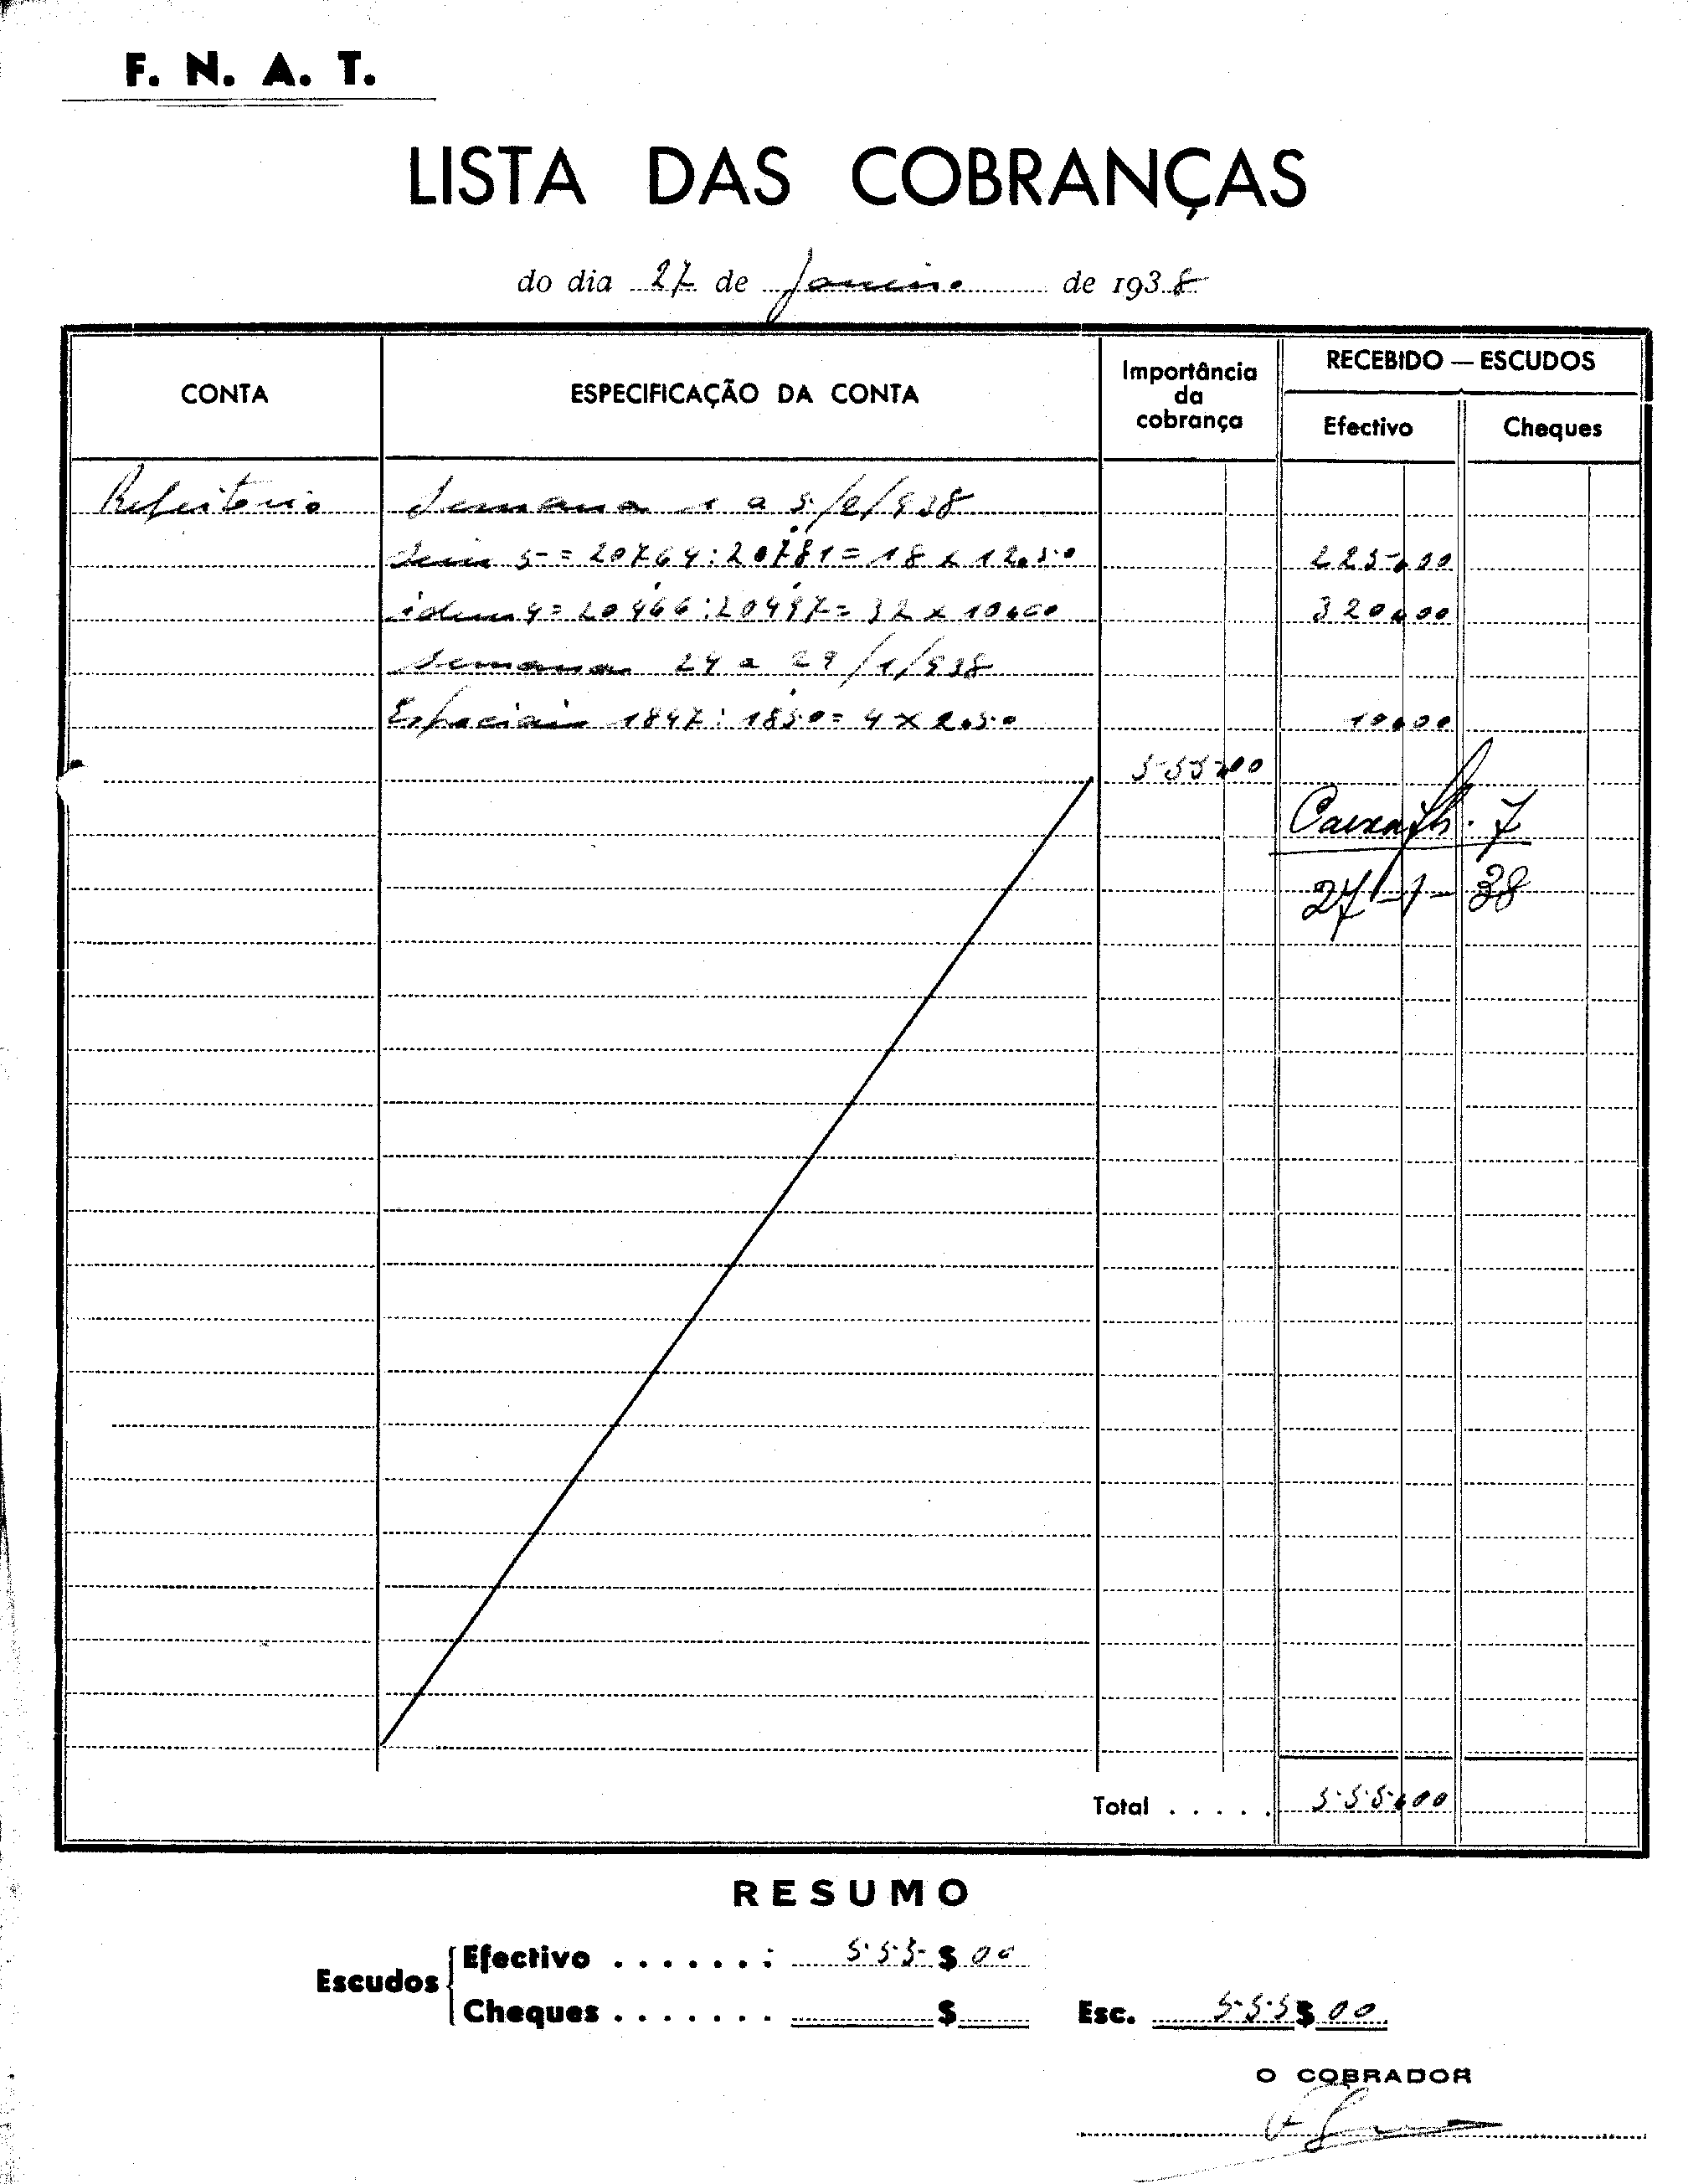 F. N. A. T.
LISTA DAS COBRANÇAS
do dia 27 de Janeiro de 1938
CONTA ESPECIFICAÇÃO DA CONTA Importância da cobrança RECEBIDO — ESCUDOS
Efectivo Cheques
Refeitorio Semana 1 a 5/2/938
5 = 20764 : 20781 = 18 x 12,50 225,00
idem 4 = 20466 : 20497 = 32 x 10,00 320,00
Semana 24 a 29/1/938
Especiais 1847 : 1850 = 4 x 2,50 10,00
555,00
Caixa fh. 7
27-1-38
Total . . . . . 555,00
RESUMO
Escudos
Efectivo . . . . . . . : 555 $ 00
Cheques . . . . . . . $ Esc. 555 $ 00
O COBRADOR